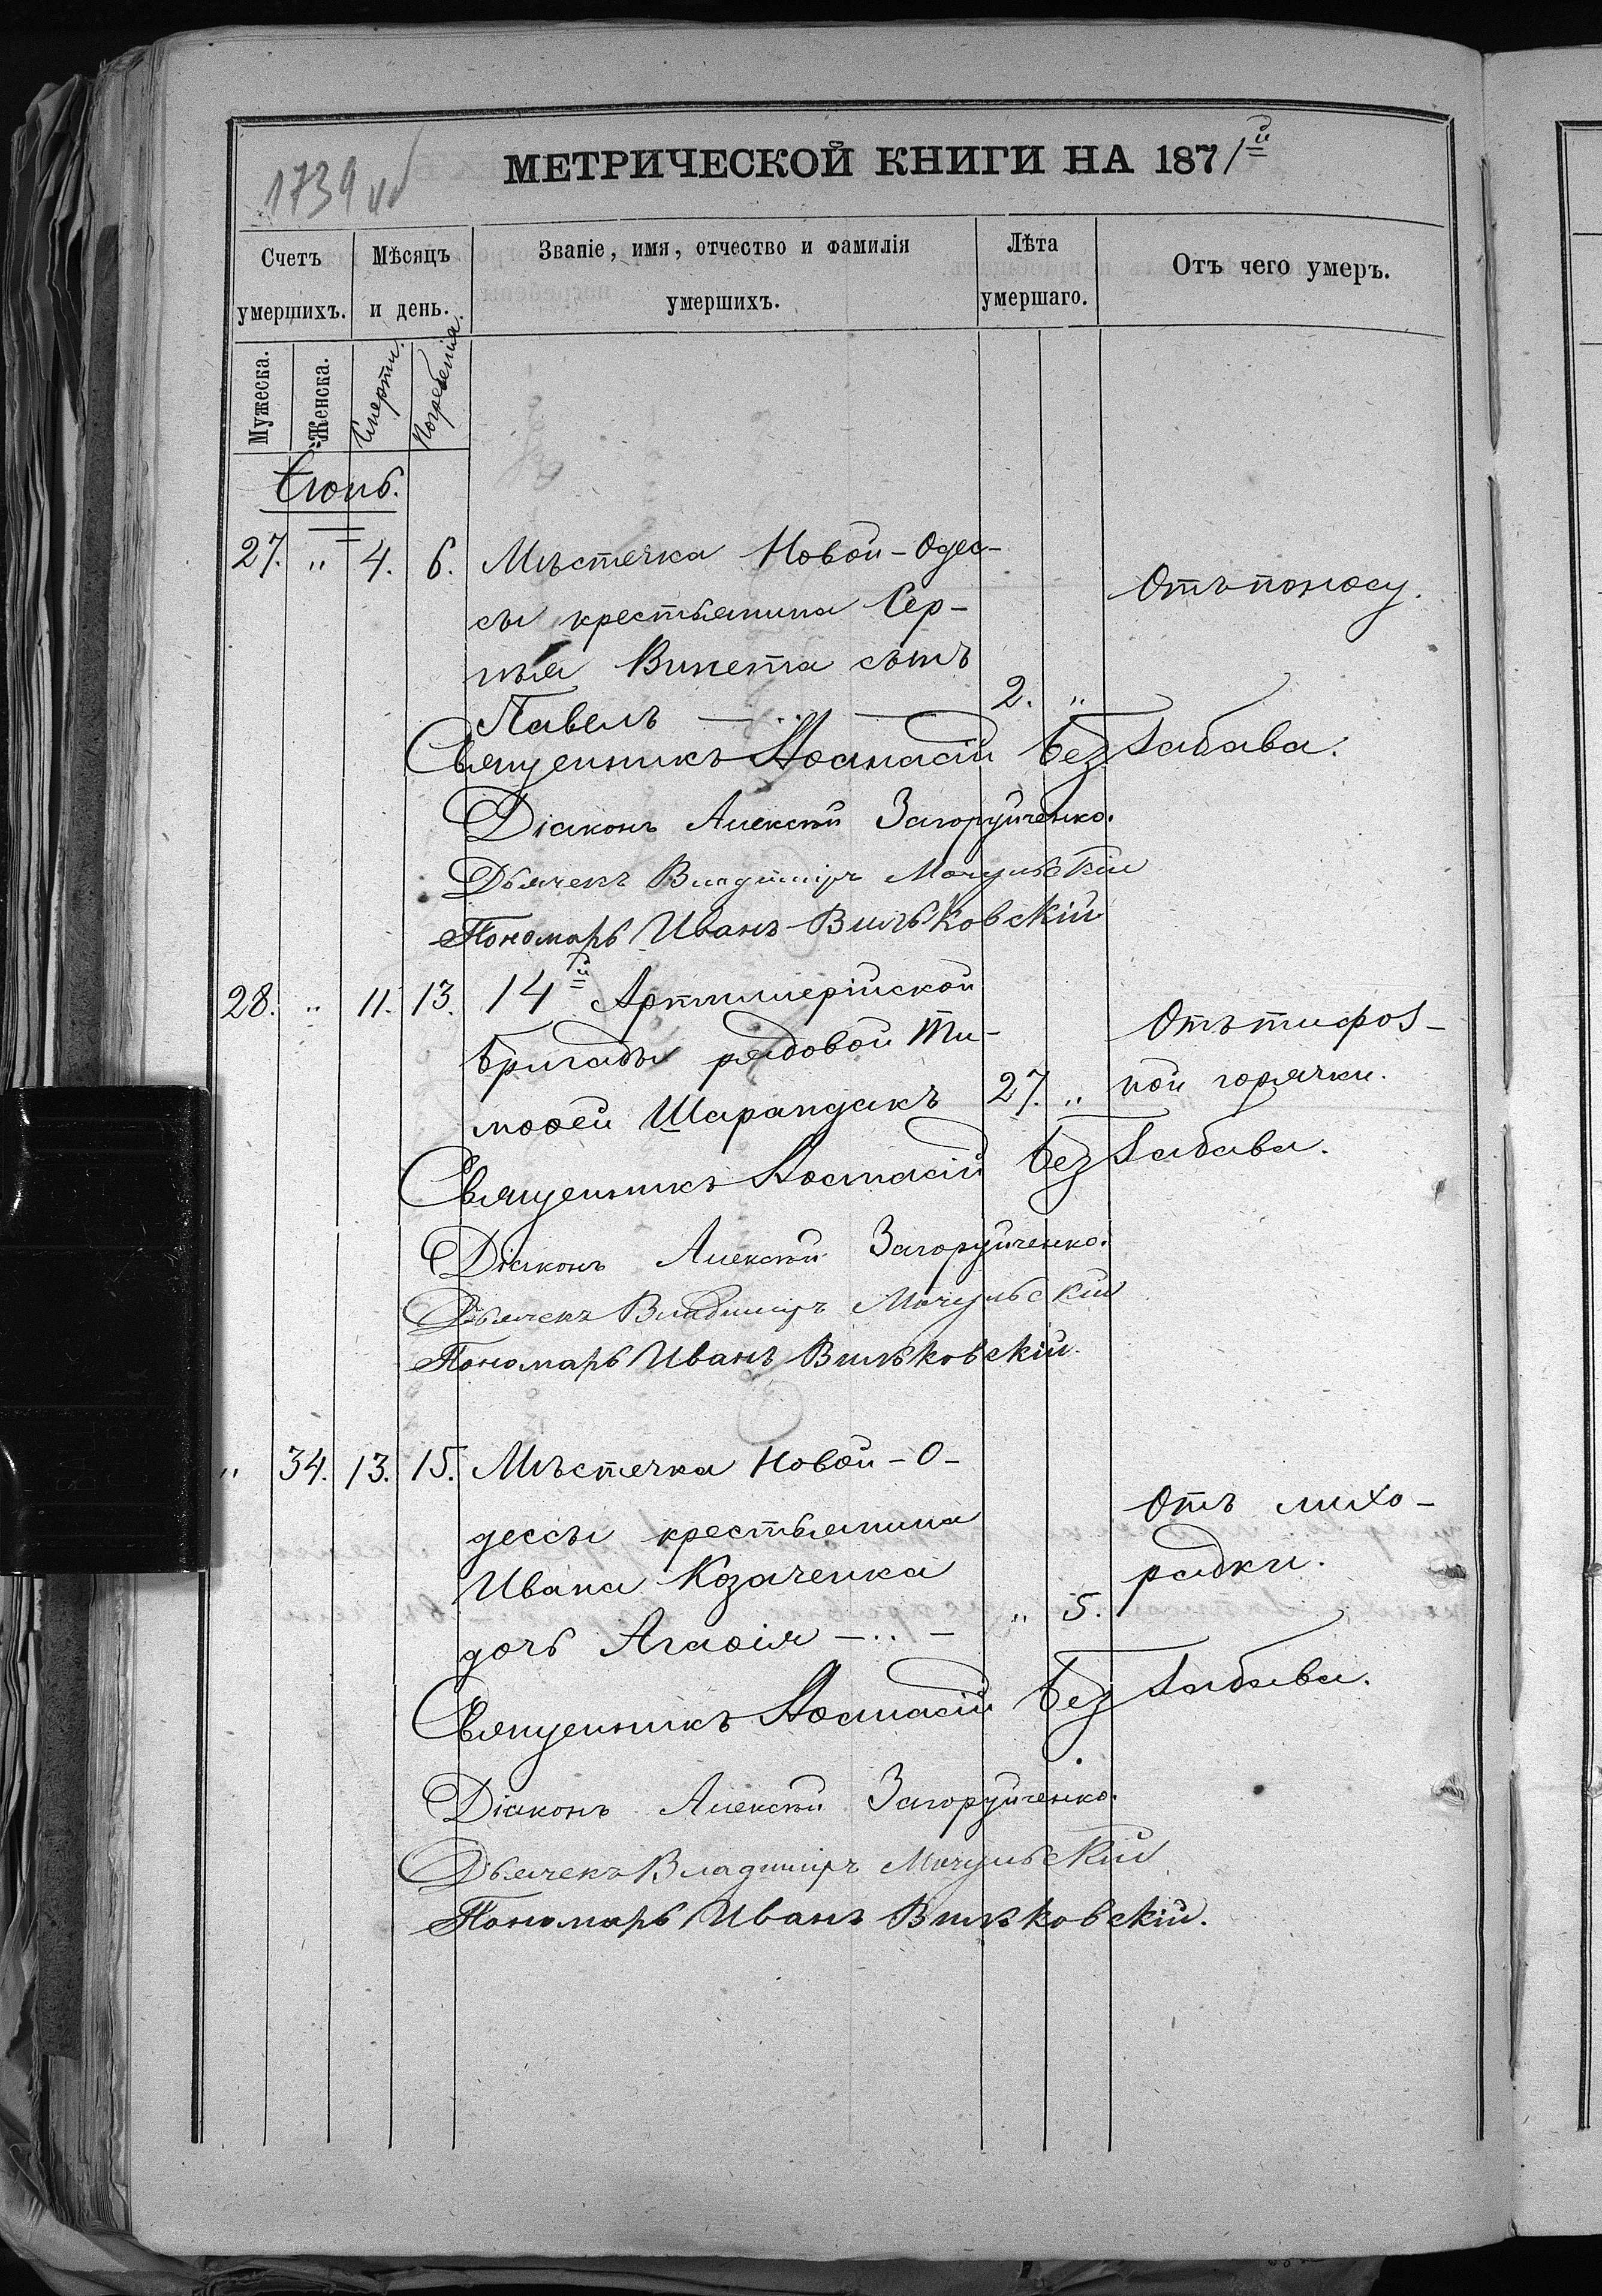 1739 об
МЕТРИЧЕСКОЙ КНИГИ НА 1871й
Счетъ умершихъ.
Мѣсяцъ и день.
Званіе, имя, отчество и фамилія умершихъ.
Лѣта умершаго.
Отъ чего умеръ.
Мужеска.
Женска.
Смерти.
Погребенія.
Іюнь.
27. " 4. 6. Мѣстечка Новой-Одес-
сы крестьянина Сер- Отъ поносу.
гѣя Випета сынъ
Павелъ 2. "
Священникъ Аѳанасій Безгабава.
Діаконъ Алексѣй Загоруйченко.
Дьячекъ Владиміръ Мочульскій
Пономарь Иванъ Вильковскій
28. " 11. 13. 14й Артиллерійской
бригады рядовой Ти- Отъ тифоз-
моѳей Шарандакъ 27. " ной горячки.
Священникъ Аѳанасій Безгабава.
Діаконъ Алексѣй Загоруйченко.
Дьячекъ Владиміръ Мочульскій
Пономарь Иванъ Вильковскій.
" 34. 13. 15. Мѣстечка Новой-О-
дессы крестьянина Отъ лихо-
Ивана Козаченка радки.
дочь Агаѳія " 5.
Священникъ Аѳанасій Безгабава.
Діаконъ Алексѣй Загоруйченко.
Дьячекъ Владиміръ Мочульскій
Пономарь Иванъ Вильковскій.